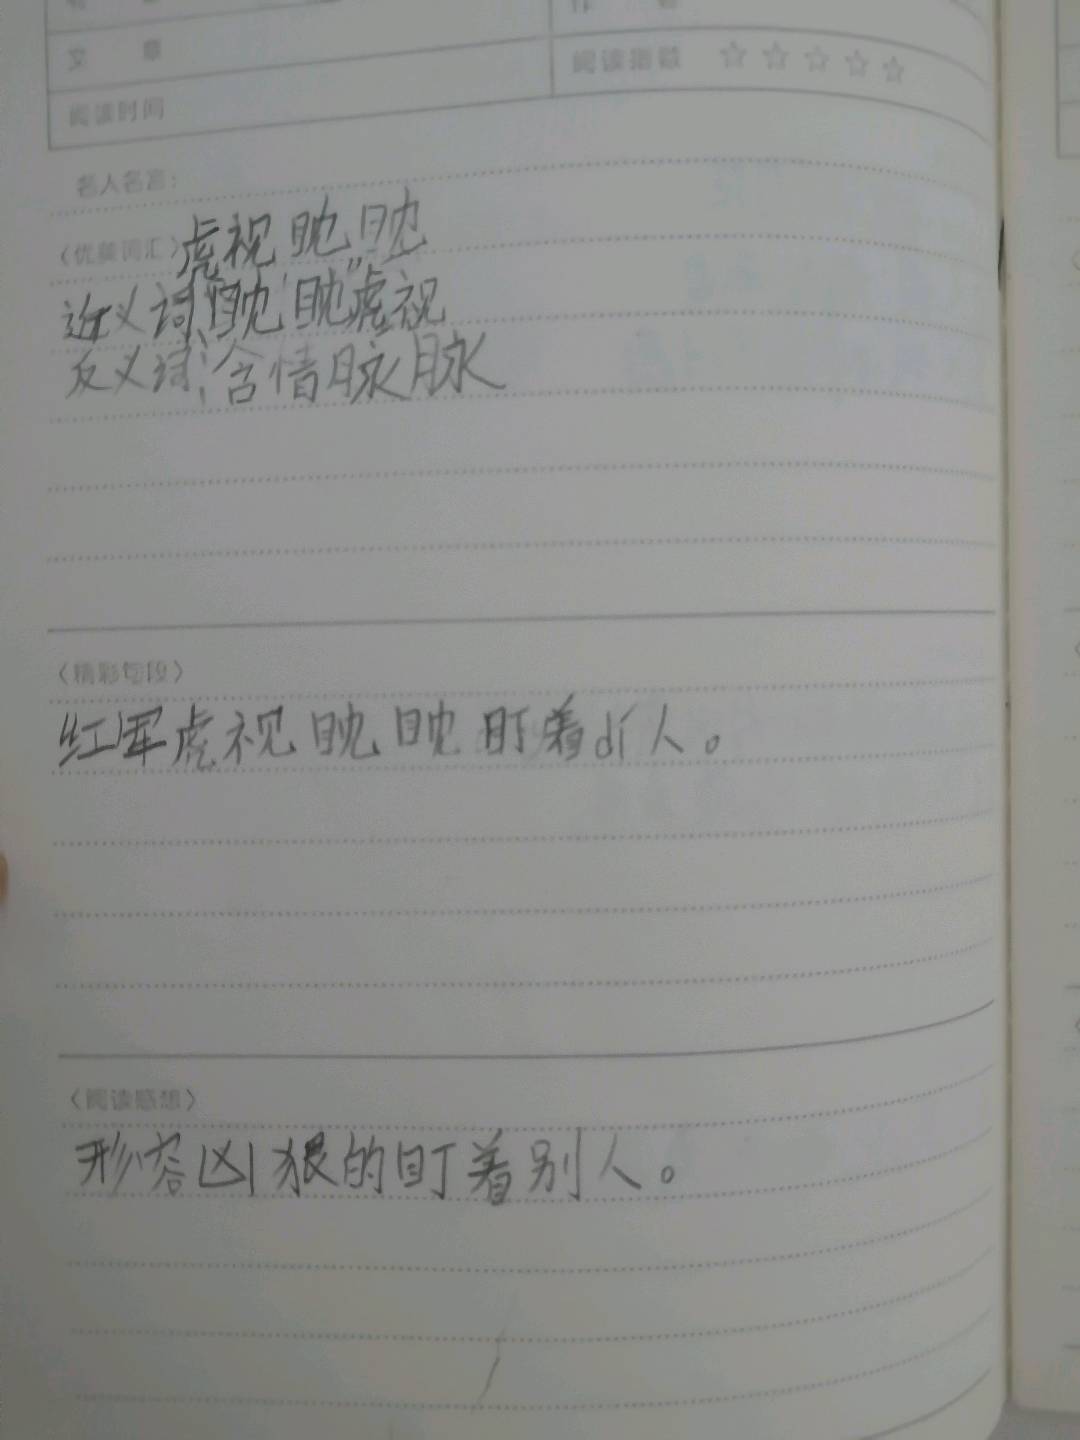 文 章
阅读指数 ☆☆☆☆☆
阅读时间
名人名言：
〈优美词汇〉虎视眈眈
近义词：眈眈虎视
反义词：含情脉脉
〈精彩句段〉
红军虎视眈眈盯着dí人。
〈阅读感想〉
形容凶狠的盯着别人。